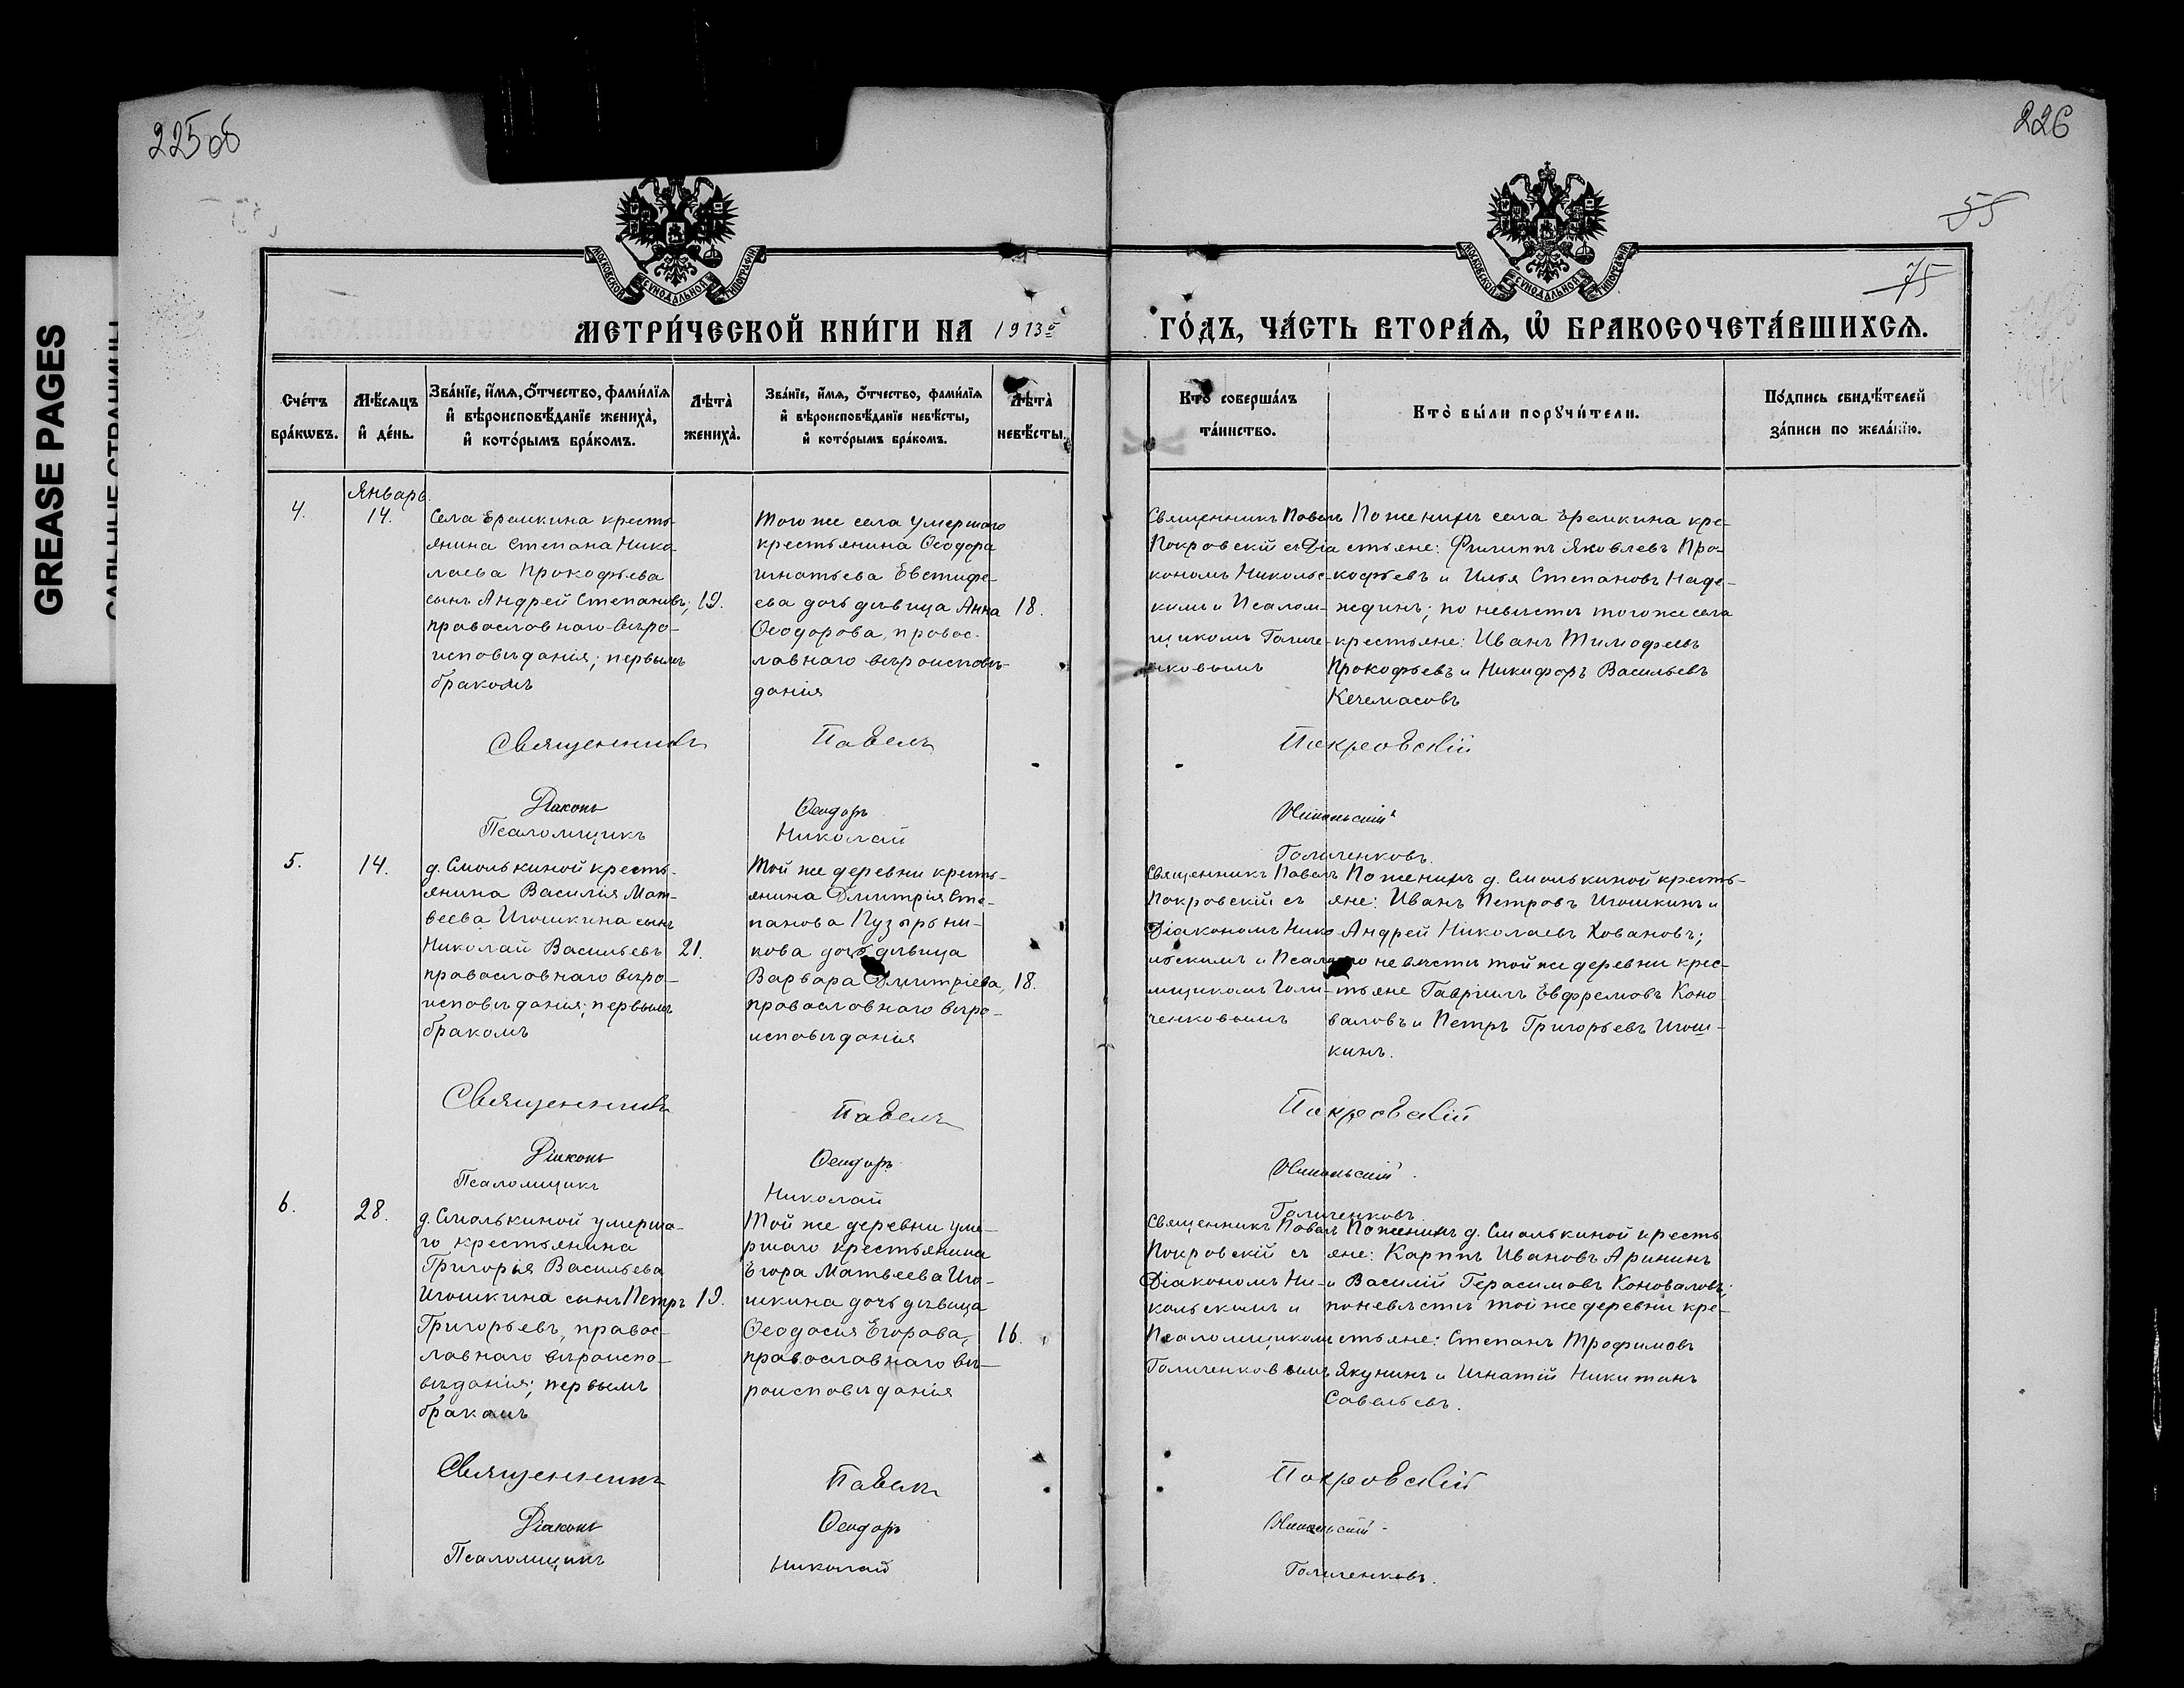 GREASE PAGES
САЛЬНЫЕ СТРАНИЦЫ
225об
226
55
75
МОСКОВСКОЙ СѴНОДАЛЬНОЙ ТИПОГРАФІИ
МОСКОВСКОЙ СѴНОДАЛЬНОЙ ТИПОГРАФІИ
МЕТРИ́ЧЕСКОЙ КНИ́ГИ НА 1913й
ГО́ДЪ, ЧА́СТЬ ВТОРА́Я, Ѡ҆ БРАКОСОЧЕТА́ВШИХСЯ.
Сче́тъ бра́кѡвъ.
Мѣ́сяцъ и҆ де́нь.
Зва́нїе, и҆́мя, ѻ҆́тчество, фами́лїя
и҆ вѣроисповѣ́данїе жениха̀,
и҆ кото́рымъ бра́комъ.
Лѣта̀ жениха̀.
Зва́нїе, и҆́мя, ѻ҆́тчество, фами́лїя
и҆ вѣроисповѣ́данїе невѣ́сты,
и҆ кото́рымъ бра́комъ.
Лѣта̀ невѣ́сты.
Кто̀ соверша́лъ
та́инство.
Кто̀ бы́ли порꙋчи́тели.
По́дпись свидѣ́телей
за́писи по жела́нїю.
Январь
4.
14.
Села Еремкина кресть-
янина Степана Нико-
лаева Прокофьева
сынъ Андрей Степановъ,
православнаго вѣро-
исповѣданія; первымъ
бракомъ
19.
Того же села умершаго
крестьянина Ѳеодора
Игнатьева Евстифе-
ева дочь дѣвица Анна
Ѳеодорова, правос-
лавнаго вѣроисповѣ-
данія
18.
Священникъ Павелъ
Покровскій съ Діа
кономъ Никольс-
кимъ и Псалом-
щикомъ Голиче-
нковымъ
По женихѣ села Еремкина кре-
стьяне: Филиппъ Яковлевъ Про-
кофьевъ и Илья Степановъ Наде-
ждинъ; по невѣстѣ того же села
крестьяне: Иванъ Тимофеевъ
Прокофьевъ и Никифоръ Васильевъ
Кечемасовъ
Священникъ Павелъ Покровскій
Діаконъ Ѳеодоръ Никольскій
Псаломщикъ Николай Голиченковъ.
5.
14.
д. Смолькиной кресть-
янина Василія Мат-
веева Игошкина сынъ
Николай Васильевъ
православнаго вѣро-
исповѣданія; первымъ
бракомъ
21.
Той же деревни кресть-
янина Дмитрія Сте-
панова Пузырьни-
кова дочь дѣвица
Варвара Дмитріева,
православнаго вѣро-
исповѣданія
18.
Священникъ Павелъ
Покровскій съ
Діакономъ Нико
льскимъ и Псало
мщикомъ Голи-
ченковымъ
По женихѣ д. Смолькиной кресть-
яне: Иванъ Петровъ Игошкинъ и
Андрей Николаевъ Ховановъ;
по невѣстѣ той же деревни крес-
тьяне Гавріилъ Евфремовъ Коно
валовъ и Петръ Григорьевъ Игош-
кинъ.
Священникъ Павелъ Покровскій
Діаконъ Ѳеодоръ Никольскій.
Псаломщикъ Николай Голиченковъ
6.
28.
д. Смолькиной умерша-
го крестьянина
Григорья Васильева
Игошкина сынъ Петръ
Григорьевъ, правос-
лавнаго вѣроиспо-
вѣданія; первымъ
бракомъ
19.
Той же деревни уме-
ршаго крестьянина
Егора Матвеева Иго-
шкина дочь дѣвица
Ѳеодосія Егорова,
православнаго вѣ-
роисповѣданія
16.
Священникъ Павелъ
Покровскій съ
Діакономъ Ни-
кольскимъ и
Псаломщикомъ
Голиченковымъ
По женихѣ д. Смолькиной кресть
яне: Карпъ Ивановъ Арининъ
и Василій Герасимовъ Коноваловъ;
по невѣстѣ той же деревни кре-
стьяне: Степанъ Трофимовъ
Якунинъ и Игнатій Никитинъ
Савельевъ.
Священникъ Павелъ Покровскій
Діаконъ Ѳеодоръ Никольскій
Псаломщикъ Николай Голиченковъ.